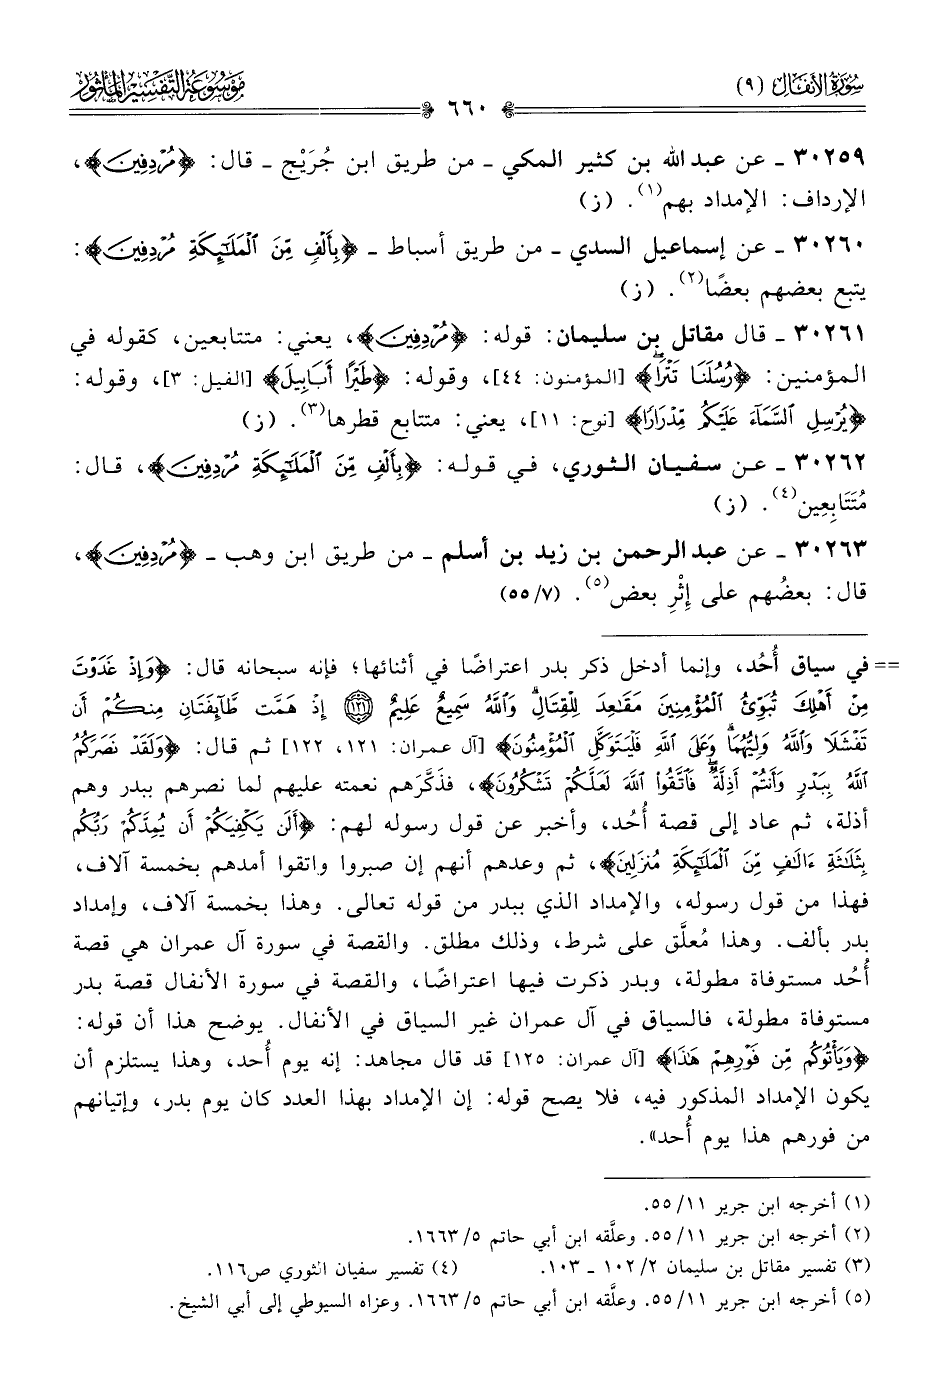 سورة الأنفال (٩)
٦٦٠
موسوعة التفسير المأثور
٣٠٢٥٩ ـ عن عبد الله بن كثير المكي ـ من طريق ابن جُرَيْج ـ قال: ﴿مُرْدِفِينَ﴾،
الإرداف: الإمداد بهم(١). (ز)
٣٠٢٦٠ ـ عن إسماعيل السدي ـ من طريق أسباط ـ ﴿بِأَلْفٍ مِّنَ الْمَلَٰٓئِكَةِ مُرْدِفِينَ﴾:
يتبع بعضهم بعضًا(٢). (ز)
٣٠٢٦١ ـ قال مقاتل بن سليمان: قوله: ﴿مُرْدِفِينَ﴾، يعني: متتابعين، كقوله في
المؤمنين: ﴿رُسُلَنَا تَتْرَا﴾ [المؤمنون: ٤٤]، وقوله: ﴿طَيْرًا أَبَابِيلَ﴾ [الفيل: ٣]، وقوله:
﴿يُرْسِلِ السَّمَآءَ عَلَيْكُم مِّدْرَارًا﴾ [نوح: ١١]، يعني: متتابع قطرها(٣). (ز)
٣٠٢٦٢ ـ عن سفيان الثوري، في قوله: ﴿بِأَلْفٍ مِّنَ الْمَلَٰٓئِكَةِ مُرْدِفِينَ﴾، قال:
مُتَتَابِعِين(٤). (ز)
٣٠٢٦٣ ـ عن عبد الرحمن بن زيد بن أسلم ـ من طريق ابن وهب ـ ﴿مُرْدِفِينَ﴾،
قال: بعضُهم على إِثْرِ بعض(٥). (٧/٥٥)
== في سياق أُحُد، وإنما أدخل ذكر بدر اعتراضًا في أثنائها؛ فإنه سبحانه قال: ﴿وَإِذْ غَدَوْتَ
مِنْ أَهْلِكَ تُبَوِّئُ الْمُؤْمِنِينَ مَقَٰعِدَ لِلْقِتَالِ وَاللَّهُ سَمِيعٌ عَلِيمٌ ١٢١ إِذْ هَمَّت طَّآئِفَتَانِ مِنكُمْ أَن
تَفْشَلَا وَاللَّهُ وَلِيُّهُمَا وَعَلَى اللَّهِ فَلْيَتَوَكَّلِ الْمُؤْمِنُونَ﴾ [آل عمران: ١٢١، ١٢٢] ثم قال: ﴿وَلَقَدْ نَصَرَكُمُ
اللَّهُ بِبَدْرٍ وَأَنتُمْ أَذِلَّةٌ فَاتَّقُوا اللَّهَ لَعَلَّكُمْ تَشْكُرُونَ﴾، فذَكَّرَهم نعمته عليهم لما نصرهم ببدر وهم
أذلة، ثم عاد إلى قصة أُحُد، وأخبر عن قول رسوله لهم: ﴿أَلَن يَكْفِيَكُمْ أَن يُمِدَّكُمْ رَبُّكُم
بِثَلَٰثَةِ ءَالَٰفٍ مِّنَ الْمَلَٰٓئِكَةِ مُنزَلِينَ﴾، ثم وعدهم أنهم إن صبروا واتقوا أمدهم بخمسة آلاف،
فهذا من قول رسوله، والإمداد الذي ببدر من قوله تعالى. وهذا بخمسة آلاف، وإمداد
بدر بألف. وهذا مُعلَّق على شرط، وذلك مطلق. والقصة في سورة آل عمران هي قصة
أُحُد مستوفاة مطولة، وبدر ذكرت فيها اعتراضًا، والقصة في سورة الأنفال قصة بدر
مستوفاة مطولة، فالسياق في آل عمران غير السياق في الأنفال. يوضح هذا أن قوله:
﴿وَيَأْتُوكُم مِّن فَوْرِهِمْ هَٰذَا﴾ [آل عمران: ١٢٥] قد قال مجاهد: إنه يوم أُحد، وهذا يستلزم أن
يكون الإمداد المذكور فيه، فلا يصح قوله: إن الإمداد بهذا العدد كان يوم بدر، وإتيانهم
من فورهم هذا يوم أُحد».
(١) أخرجه ابن جرير ١١/ ٥٥.
(٢) أخرجه ابن جرير ١١/ ٥٥. وعلَّقه ابن أبي حاتم ٥/ ١٦٦٣.
(٣) تفسير مقاتل بن سليمان ٢/ ١٠٢ ـ ١٠٣. (٤) تفسير سفيان الثوري ص١١٦.
(٥) أخرجه ابن جرير ١١/ ٥٥. وعلَّقه ابن أبي حاتم ٥/ ١٦٦٣. وعزاه السيوطي إلى أبي الشيخ.